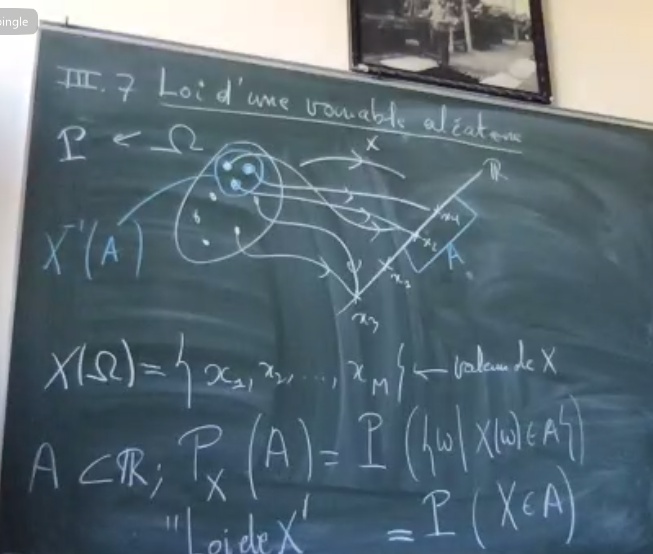 ingle
III.7 Loi d'une variable aléatoire
P ← Ω
X
ℝ
X⁻¹(A)
x₄
x₂
A
x₁
x₃
X(Ω) = { x₁, x₂, ..., x_M } ← valeur de X
A ⊂ ℝ; P_X (A) = P ({ω | X(ω) ∈ A})
"Loi de X" = P (X ∈ A)